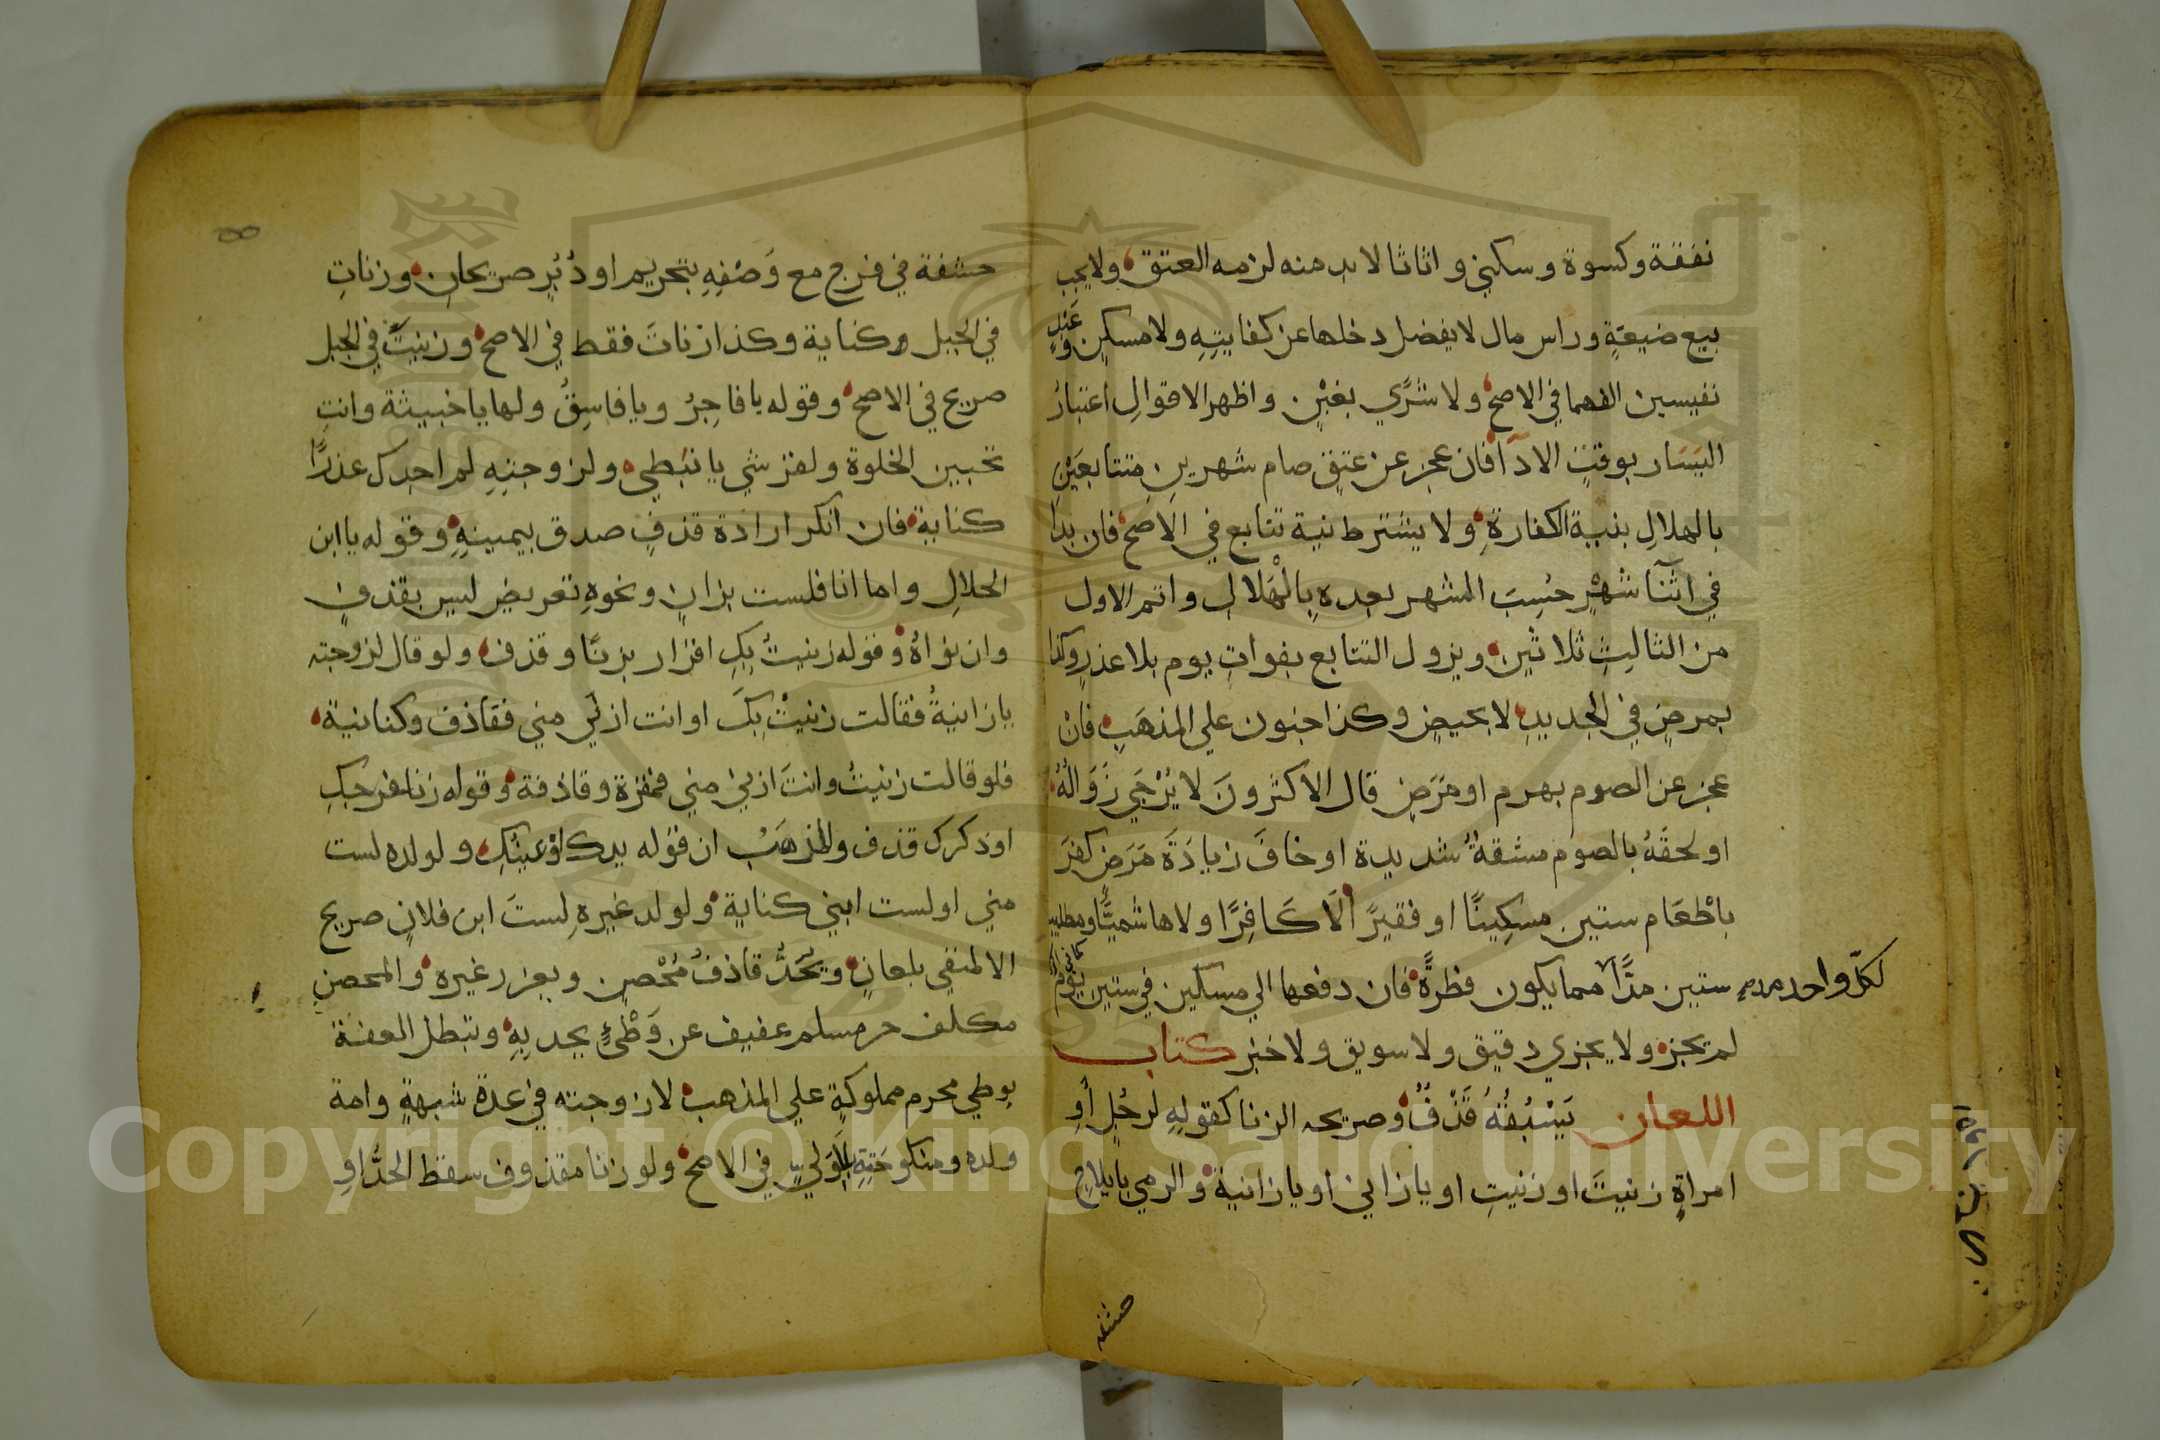 نفقة وكسوة وسكني واثاثا لا بد منه لزمه العتق ولا يجب
بيع ضيعةٍ وراس مال لا يفضل دخلها عن كفايتِهِ ولا مسكنٍ وعَبْدٍ
نفيسين الفهما في الاصح ولا شرًي بغبْنٍ واظهر الاقوالِ اعتبارُ
اليَسَار بوقتِ الادآ فان عجز عن عتقٍ صام شهرينِ متتابعَيْنِ
بالهلالِ بنية الكفارةِ ولا يشترط نية تتابع في الاصح فان بدا
في اثنآ شهْرٍ حُسِبَ الشهر بعده بِالْهَلالِ واتم الاول
من الثالثِ ثلاثين ويزول التتابع بفواتِ يوم بلا عذرٍ وكذا
بمرضٍ في الجديدِ لا بحيضٍ وكذا جنون علي المذهَبِ فانْ
عجز عن الصوم بهرم او مَرَضٍ قال الاكثرونَ لا يُرْجَي زَوَالُهُ
او لحقَهُ بالصوم مشقةٌ شديدة او خافَ زيادَةَ مَرَضٍ كفرَ
باطْعَام ستين مسْكِينًا او فقيرً الَا كَافِرًا ولا هاشميًّا ومطلبيا
ستين مدًّا مما يكون فطرةً فان دفعها الي مسكين في ستين يوم
لكلّ واحد مد
لم يجز ولا يجزي دقيق ولا سويق ولا خبز كتاب
اللعان يَسْبُقُهُ قَذْفٌ وصريحه الزنا كقولِهِ لرجُلٍ أو
امراةٍ زنيتَ او زنيتِ او يا زاني او يا زانية والرمي بايلاجِ
حشفة
حشفة في فرج مع وَصْفِهِ بتحريم او دُبُرٍ صريحان وزناتِ
في الجبل كناية وكذا زناتَ فقط في الاصح وزنيتَ في الجبل
صريح في الاصح وقوله يا فاجِرُ ويا فاسِقُ ولها يا خبيثة وانتِ
تحبين الخلوة ولقرشي يا نبَطي ولزوجتِهِ لم اجدك عذرًا
كناية فان انكر ارادة قذفٍ صدق بيمينِهِ وقوله يا ابن
الحلالِ واما انا فلست بزانٍ ونحوهِ تعريض ليس بقذفٍ
وان نواهُ وقوله زنيتُ بِكِ اقرار بزنًا وقذف ولو قال لزوجته
يا زانيةُ فقالت زنيتُ بِكَ او انت ازني مني فقاذف وكنانية
فلو قالت زنيتُ وانتَ ازني مني فمقرة وقاذفة وقوله زنا فرجكِ
او ذكرك قذف والمذهَبُ ان قوله يدك او عينُكِ ولولده لست
مني او لست ابني كناية ولولد غيرهِ لستَ ابن فلانٍ صريح
الا لمنفي بلعانٍ ويُحَدُّ قاذفُ مُحْصنٍ ويعزر غيره والمحصن
مكلف حر مسلم عفيف عن وَطْئٍ يحد بِهِ وتبطل العفة
بوطي محرم مملوكةٍ علي المذهب لا زوجته في عدة شبهةٍ وامة
ولده ومنكوحَتِهِ بلا وَلي في الاصح ولو زنا مقذوف سقط الحدُّ اوِ
Copyright © King Saud University